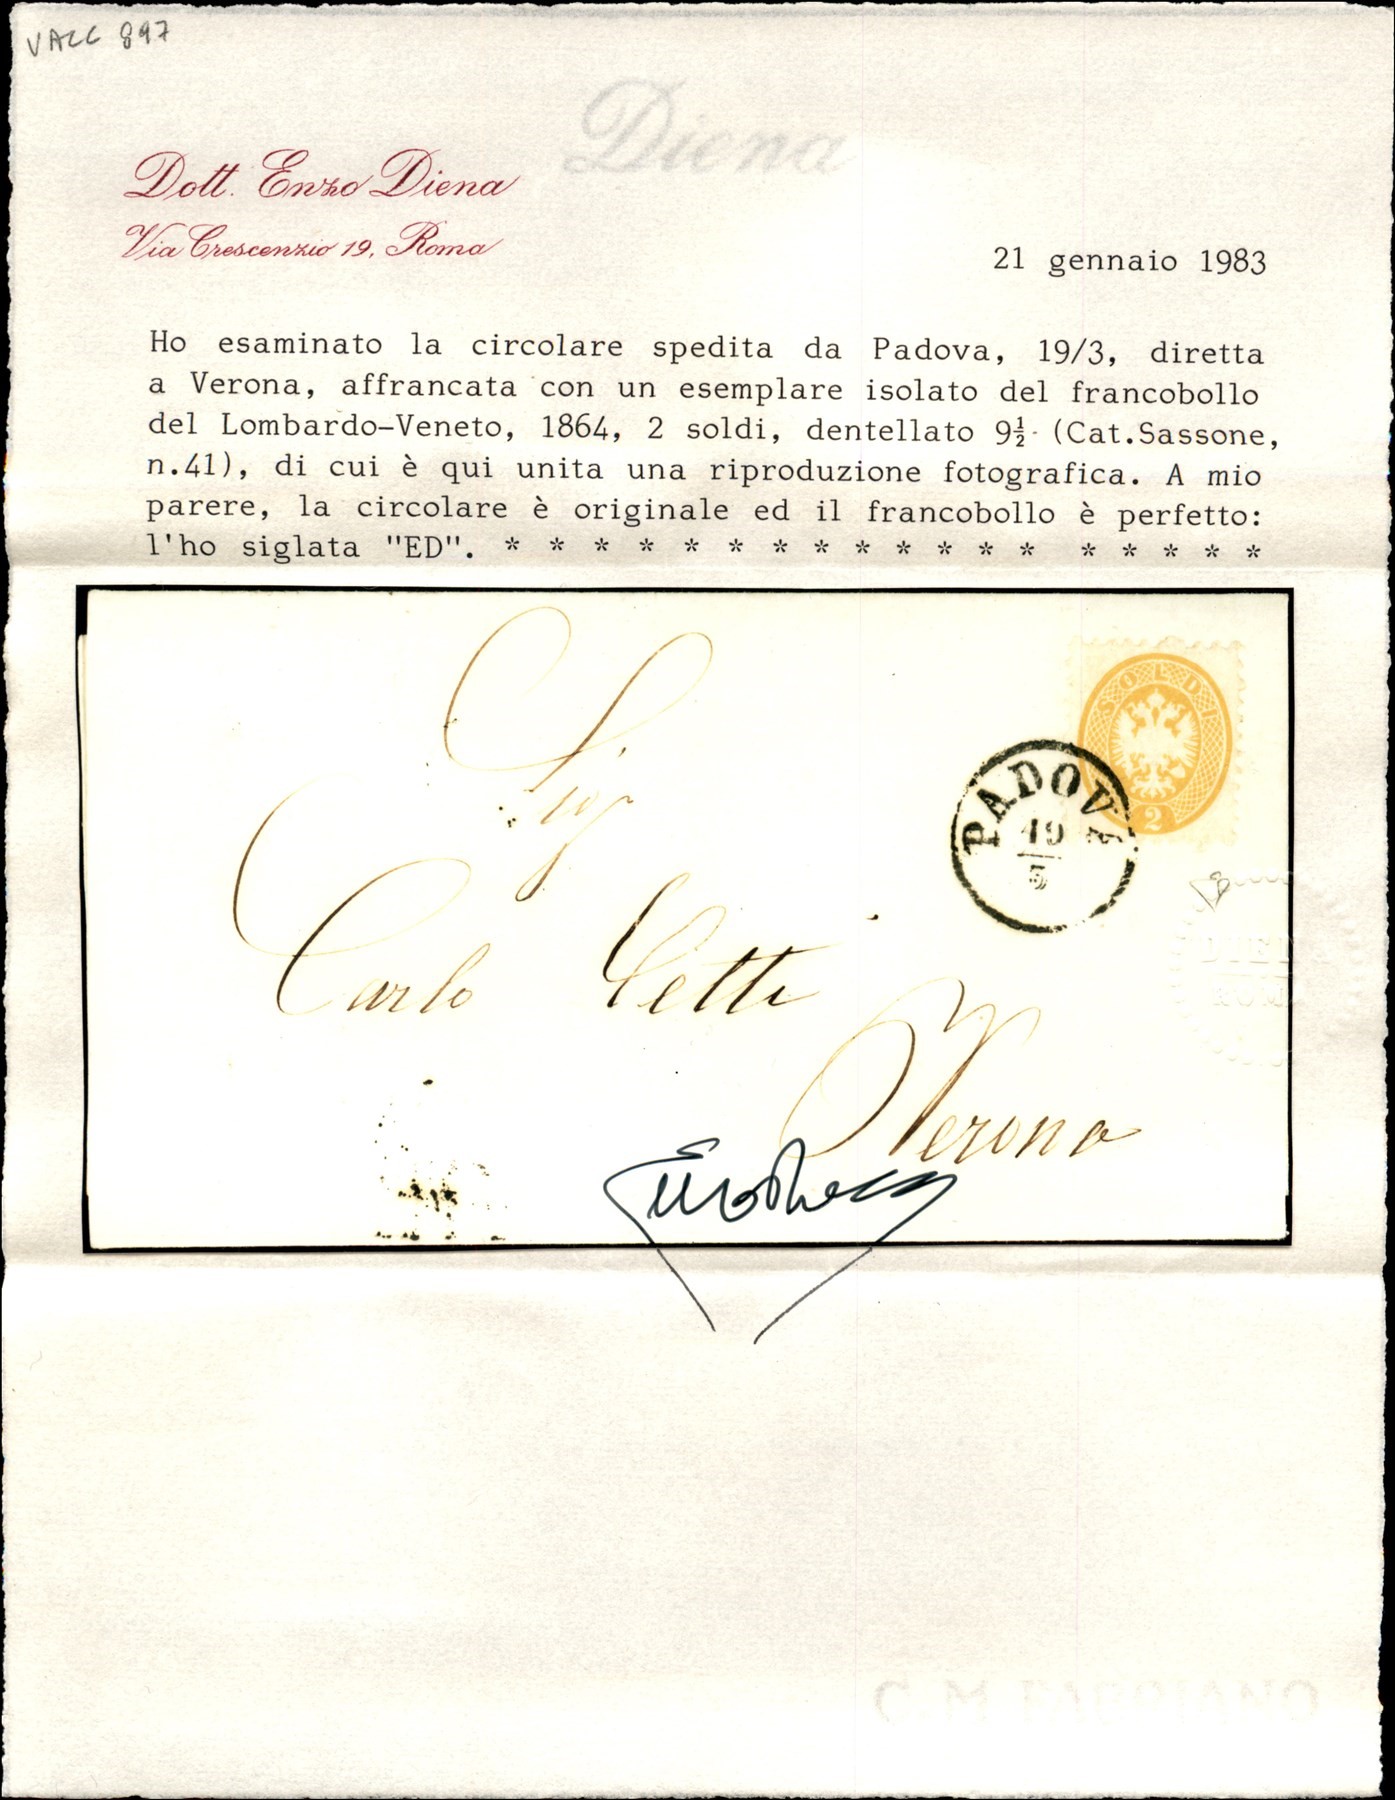 VACC 897
Diena
Dott. Enzo Diena
Via Crescenzio 19, Roma
21 gennaio 1983
Ho esaminato la circolare spedita da Padova, 19/3, diretta
a Verona, affrancata con un esemplare isolato del francobollo
del Lombardo-Veneto, 1864, 2 soldi, dentellato 9½ (Cat.Sassone,
n.41), di cui è qui unita una riproduzione fotografica. A mio
parere, la circolare è originale ed il francobollo è perfetto:
l'ho siglata "ED". * * * * * * * * * * * * * * * * * *
SOLDI
2
PADOVA
19
3
Sig
Carlo Cetti
Verona
Enzo Diena
C M FABRIANO